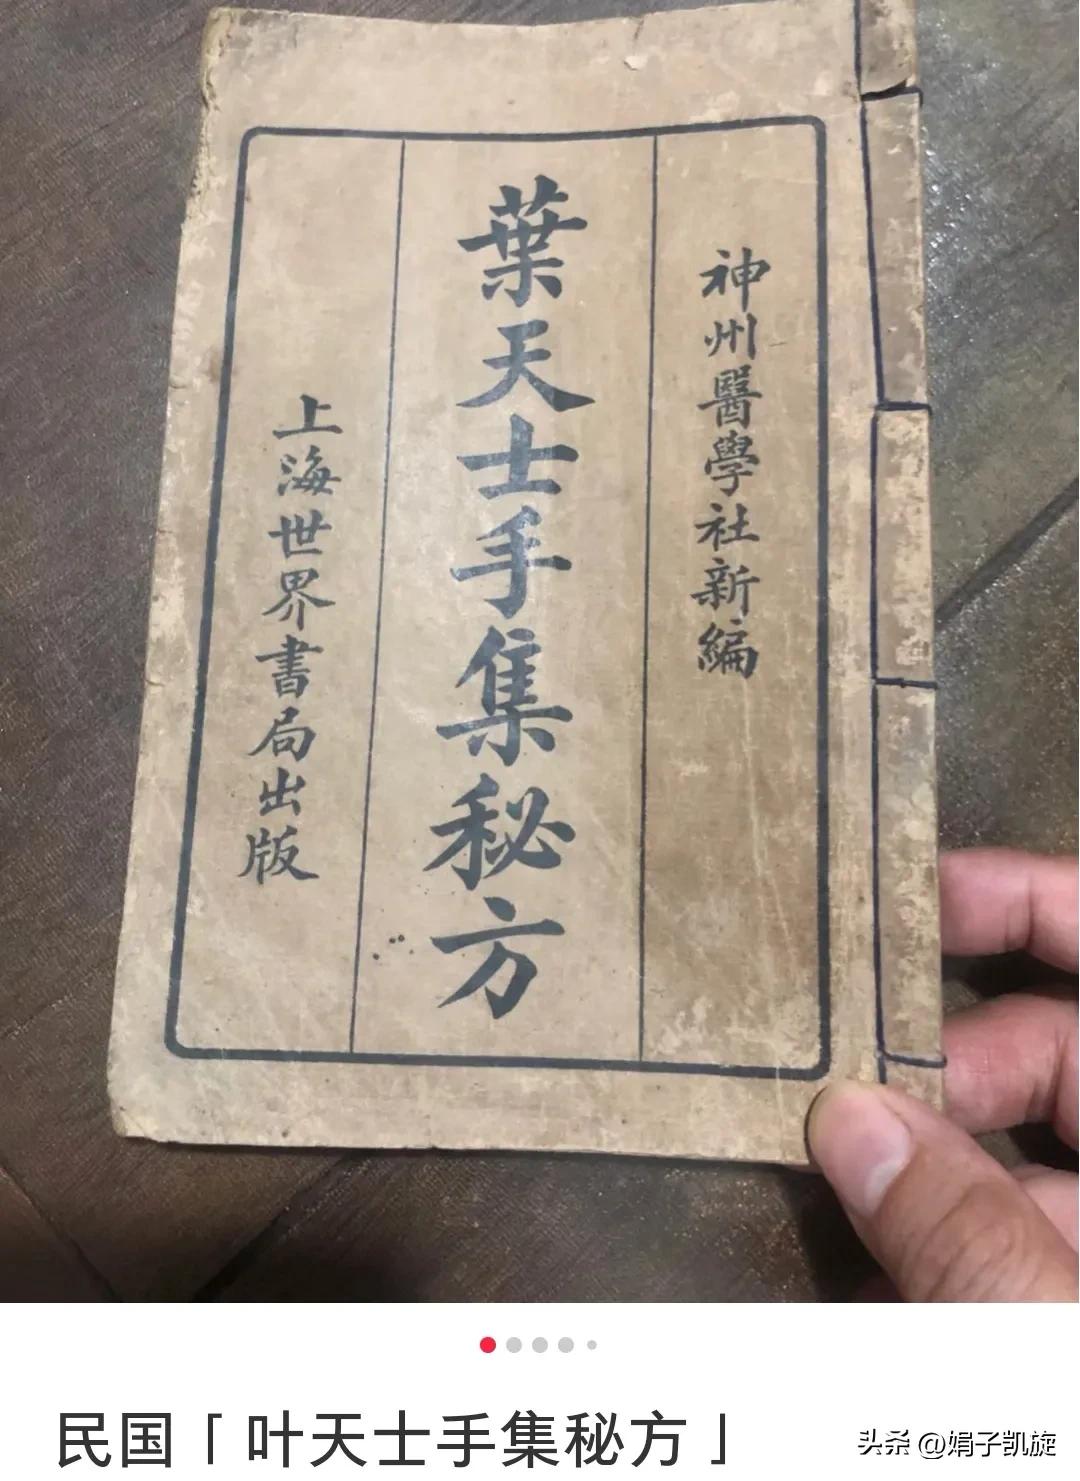 神州醫學社新編
葉天士手集秘方
上海世界書局出版
民国「叶天士手集秘方」
头条 @娟子凯旋